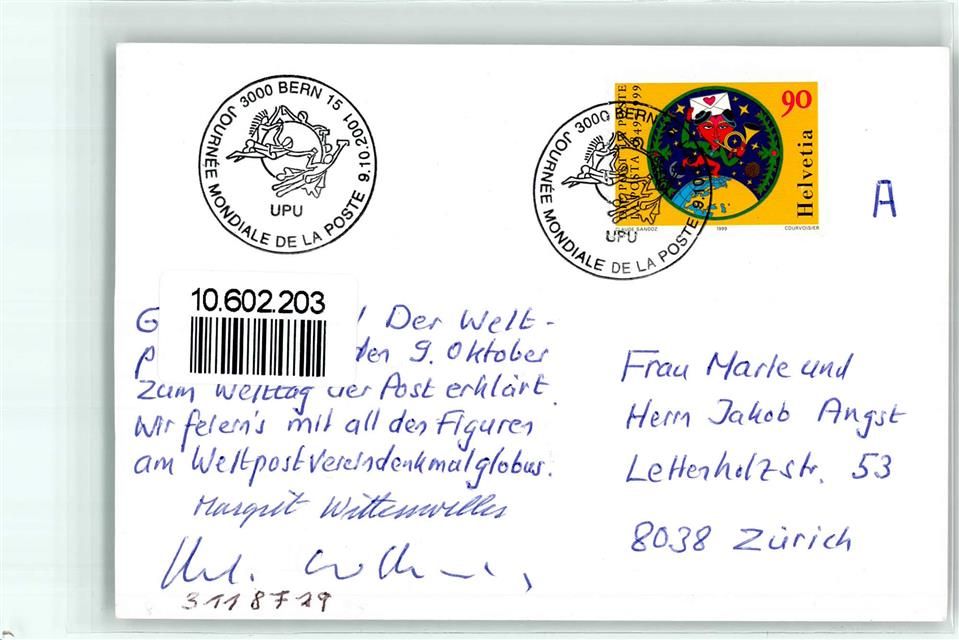 JOURNÉE MONDIALE DE LA POSTE 9.10.2001
3000 BERN 15
UPU
JOURNÉE MONDIALE DE LA POSTE
3000 BERN
UPU
90
Helvetia
CLAUDE SANDOZ 1999 COURVOISIER
A
10.602.203
G ! Der Welt-
p den 9. Oktober
zum Welttag der Post erklärt.
Wir feiern's mit all den Figuren
am Weltpostvereindenkmalglobus.
Margrit
3118729
Frau Marle und
Herrn Jakob Angst
Letterholzstr. 53
8038 Zürich